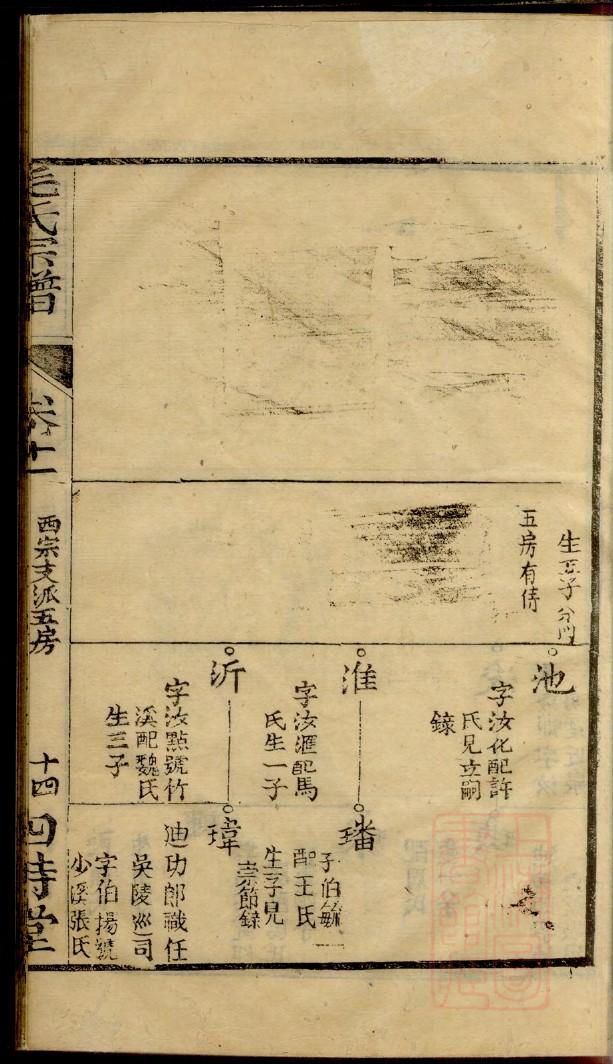 生五子分門
五房有傳
池
字汝化配許
氏見立嗣
錄
淮
字汝滙配馬
氏生一子
沂
字汝點號竹
溪配魏氏
生三子
璠
字伯毓
配王氏
生一子見
崇節錄
瑋
迪功郎職任
吳陵巡司
字伯揚號
少溪張氏
毛氏宗譜
卷十一
西宗支派五房
十四
四時堂